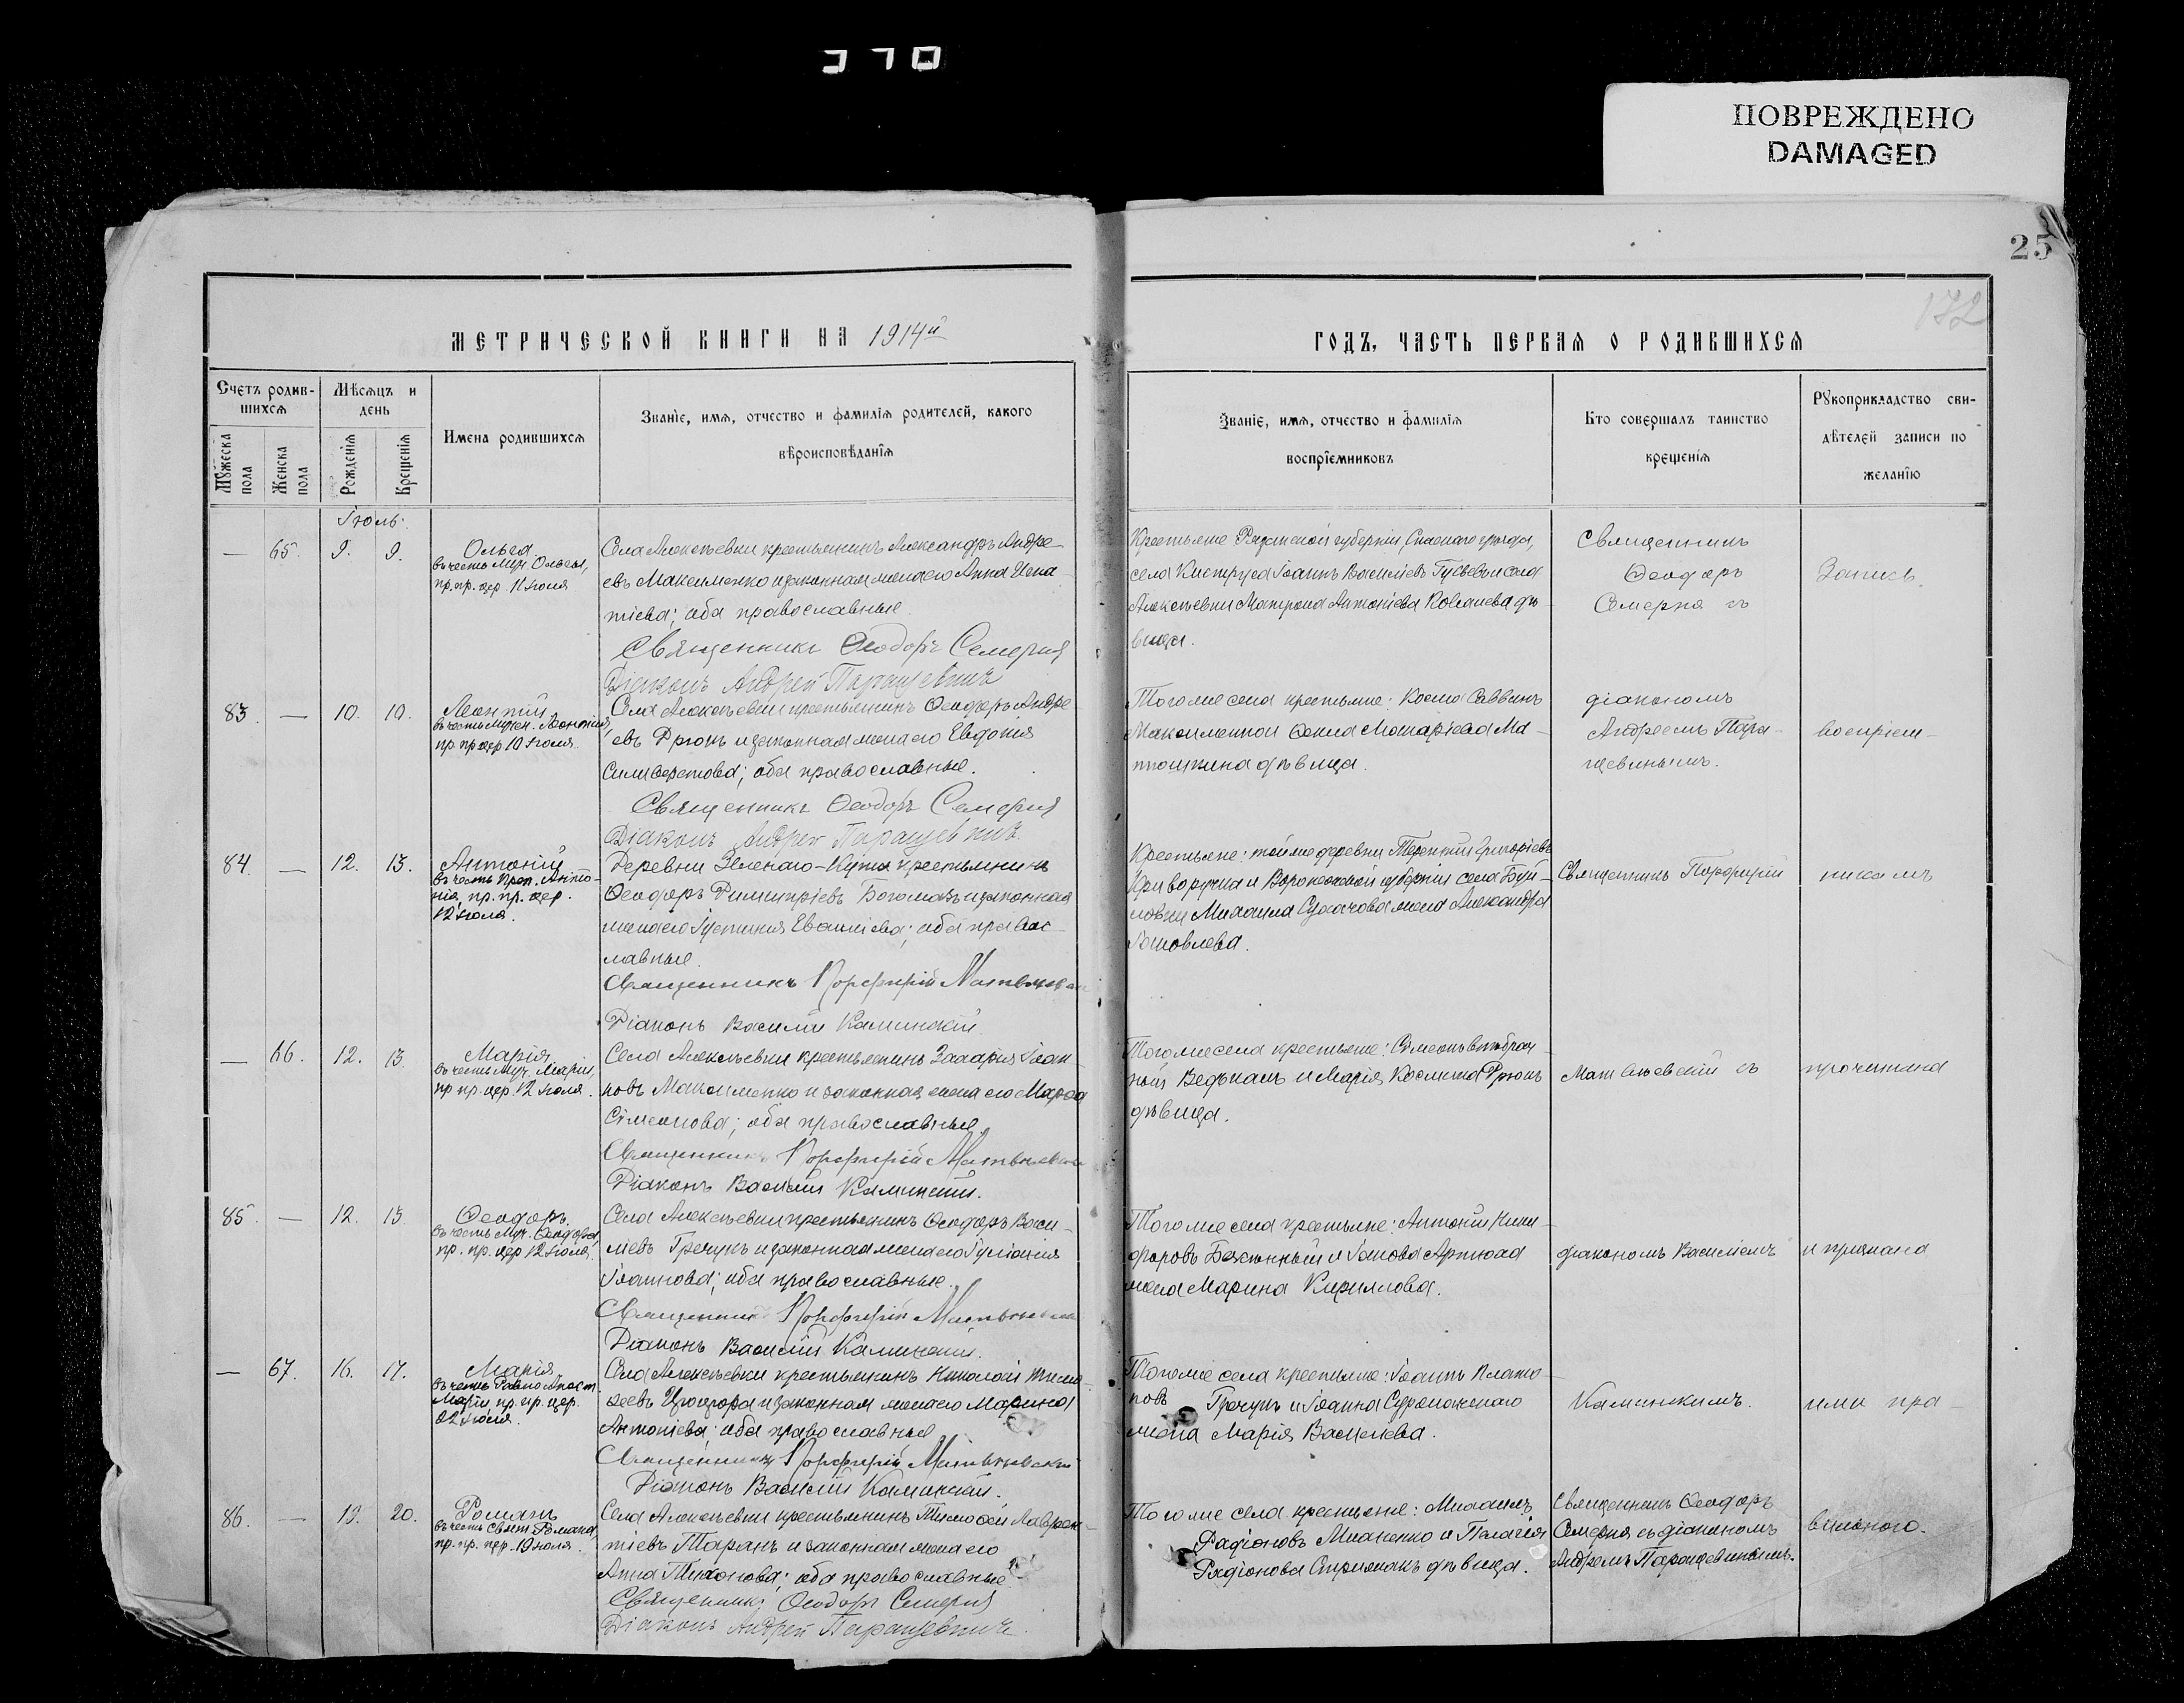 370
ПОВРЕЖДЕНО
DAMAGED
25
172
МЕТРИЧЕСКОЙ КНИГИ НА 1914й
ГОДЪ, ЧАСТЬ ПЕРВАЯ О РОДИВШИХСЯ
Счетъ родив-
шихся
Мѣсяцъ и
день
Мужеска
пола
Женска
пола
Рожденія
Крещенія
Имена родившихся
Званіе, имя, отчество и фамилія родителей, какого
вѣроисповѣданія
Званіе, имя, отчество и фамилія
воспріемниковъ
Кто совершалъ таинство
крещенія
Рукоприкладство сви-
дѣтелей записи по
желанію
Іюль.
— 65. 9. 9.
Ольга
въ честь Муч. Ольги,
пр. пр. цер. 11 іюля
Села Алексѣевки крестьянинъ Александръ Андре-
евъ Максименко и законная жена его Анна Игна-
тіева; оба православные.
Священникъ Ѳеодоръ Семерня
Діаконъ Андрей Паращевинъ
Крестьяне Рязанской губерніи, Спаскаго уѣзда,
села Киструса Іоаннъ Василіевъ Гусевъ и села
Алексѣевки Матрона Антоніева Ковалева дѣ-
вица.
Священникъ
Ѳеодоръ
Семерня съ
Запись
83. — 10. 10.
Леонтий
въ честь Мучен. Леонтія,
пр. пр. цер. 10 іюля.
Села Алексѣевки крестьянинъ Ѳеодоръ Андре-
евъ Дрюкъ и законная жена его Евдокія
Силверстова; оба православные.
Священникъ Ѳеодоръ Семерня
Діаконъ Андрей Паращевинъ
Того же села крестьяне: Косма Саввинъ
Максименко и Ѳекла Макаріева Ма-
тюшкина дѣвица.
діакономъ
Андреемъ Пара-
щевинымъ.
воспріем-
84. — 12. 13.
Антоній
въ честь Преп. Анто-
нія, пр. пр. цер.
12 іюля.
Деревни Зеленаго-Кута крестьянинъ
Ѳеодоръ Димитріевъ Богомазъ и законная
жена его Іустинія; оба правос-
лавные.
Священникъ Порфирій Матвѣевскій
Діаконъ Василій Каминскій.
Крестьяне: той же деревни Терентій Григоріевъ
Криворучка и Воронежской губерніи села
Михаила Сухачова жена Александра
Іаковлева.
Священникъ Порфирій
никамъ
— 66. 12. 13.
Марія
въ честь Муч. Маріи,
пр. пр. цер. 12 іюля.
Села Алексѣевки крестьянинъ Захарія Іоан-
новъ Максименко и законная жена его Марѳа
Сімеонова; оба православные.
Священникъ Порфирій Матвѣевскій
Діаконъ Василій Каминскій.
Того же села крестьяне: Сімеонъ
Ведькалъ и Марія Космина Дрюкъ
дѣвица.
Матвѣевскій съ
прочитана
85. — 12. 13.
Ѳеодоръ
въ честь Муч. Ѳеодора,
пр. пр. цер. 12 іюля.
Села Алексѣевки крестьянинъ Ѳеодоръ Васи-
ліевъ Гречукъ и законная жена его Іуліанія
Іоаннова; оба православные.
Священникъ Порфирій Матвѣевскій
Діаконъ Василій Каминскій.
Того же села крестьяне: Антоній Ники-
форовъ и Іакова Артюха
жена Марина Кириллова.
діакономъ Василіемъ
и признана
— 67. 16. 17.
Марія
въ честь Равноапост.
Маріи, пр. пр. цер.
22 іюля.
Села Алексѣевки крестьянинъ Николай Тимо-
ѳеевъ Цюцюра и законная жена его Марина
Антоніева; оба православные.
Священникъ Порфирій Матвѣевскій
Діаконъ Василій Каминскій.
Того же села крестьяне: Іоаннъ Плато-
новъ Гречукъ и Іоанна
жена Марія Василіева.
Каминскимъ.
ими пра-
86. — 19. 20.
Романъ
въ честь Свят. Романа,
пр. пр. цер. 19 іюля.
Села Алексѣевки крестьянинъ Тимоѳей Лаврен-
тіевъ Таранъ и законная жена его
Анна Тихонова; оба православные.
Священникъ Ѳеодоръ Семерня
Діаконъ Андрей Паращевинъ.
Того же села крестьяне: Михаилъ
Радіоновъ Миненко и Пелагія
Радіонова Стрижакъ дѣвица.
Священникъ Ѳеодоръ
Семерня съ діакономъ
Андреемъ Паращевинымъ.
вильною.